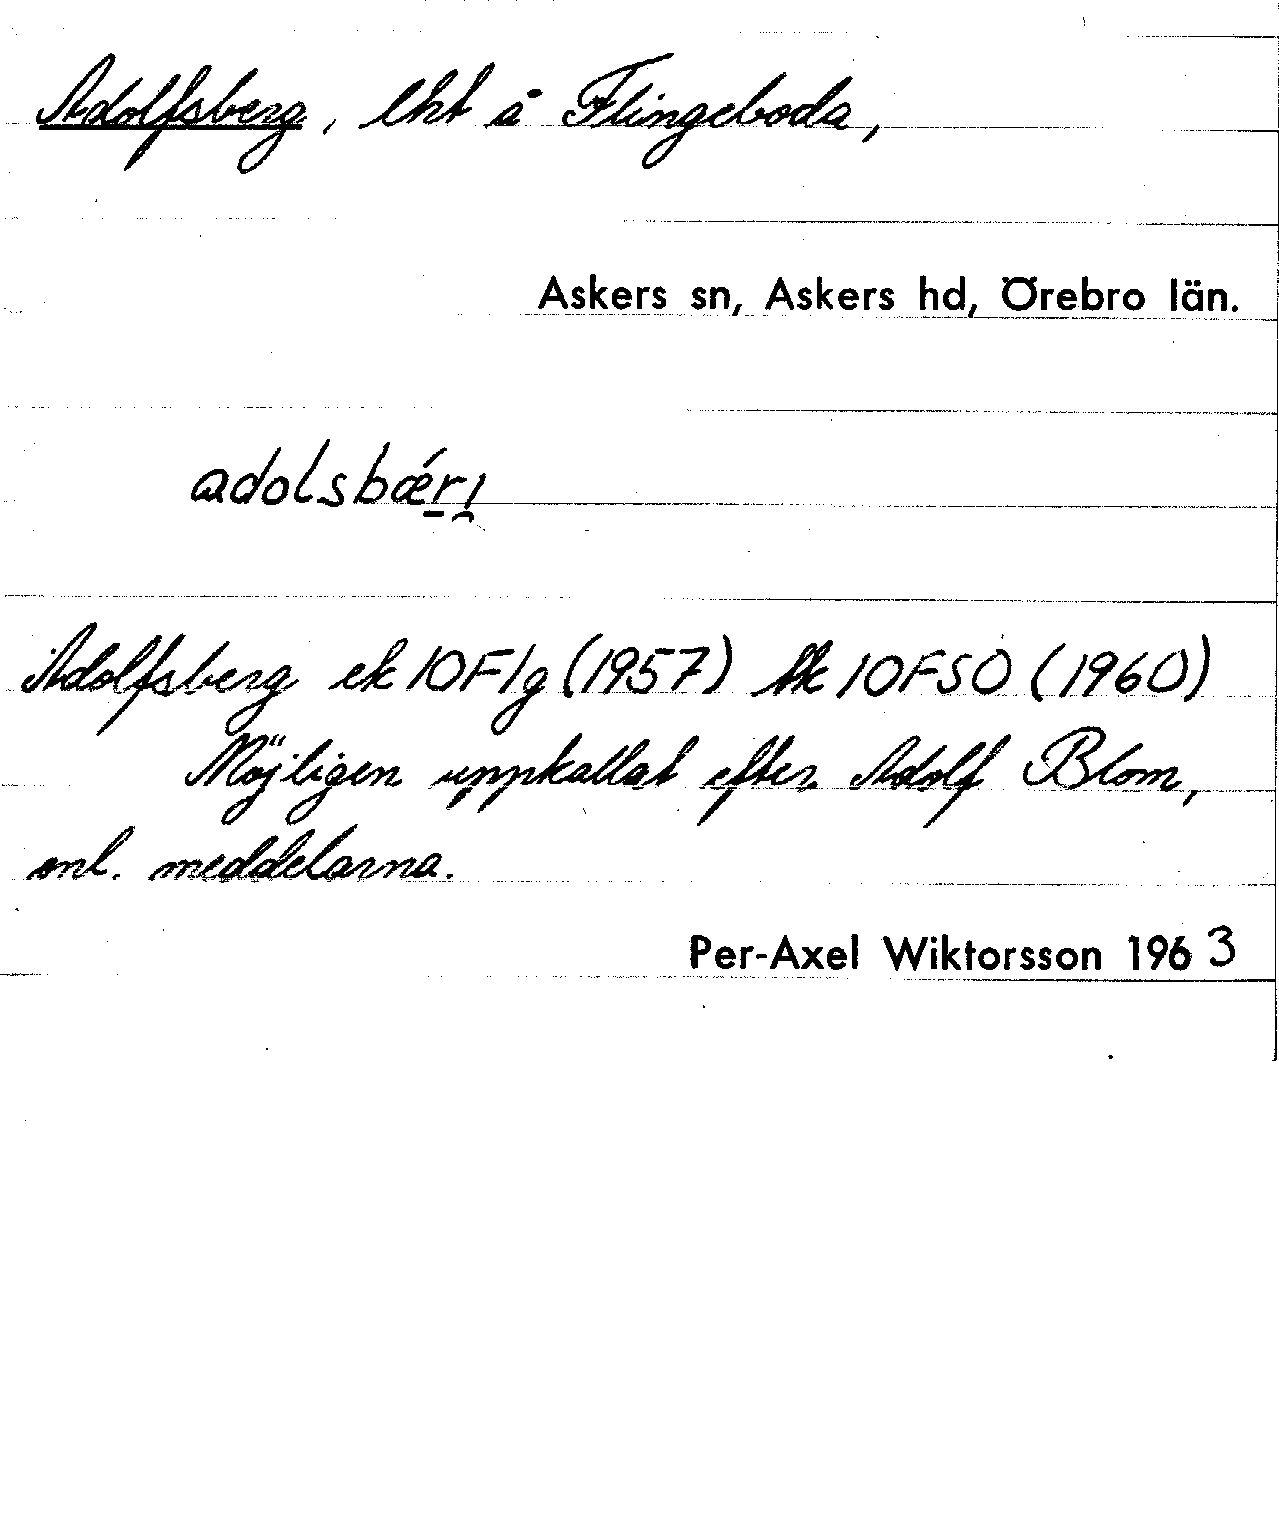 Adolfsberg, lht å Flingeboda,
Askers sn, Askers hd, Örebro län.
adolsbǽrı̯
Adolfsberg ek 10F1g (1957) tk 10FSO (1960)
Möjligen uppkallat efter Adolf Blom,
enl. meddelarna.
Per-Axel Wiktorsson 1963